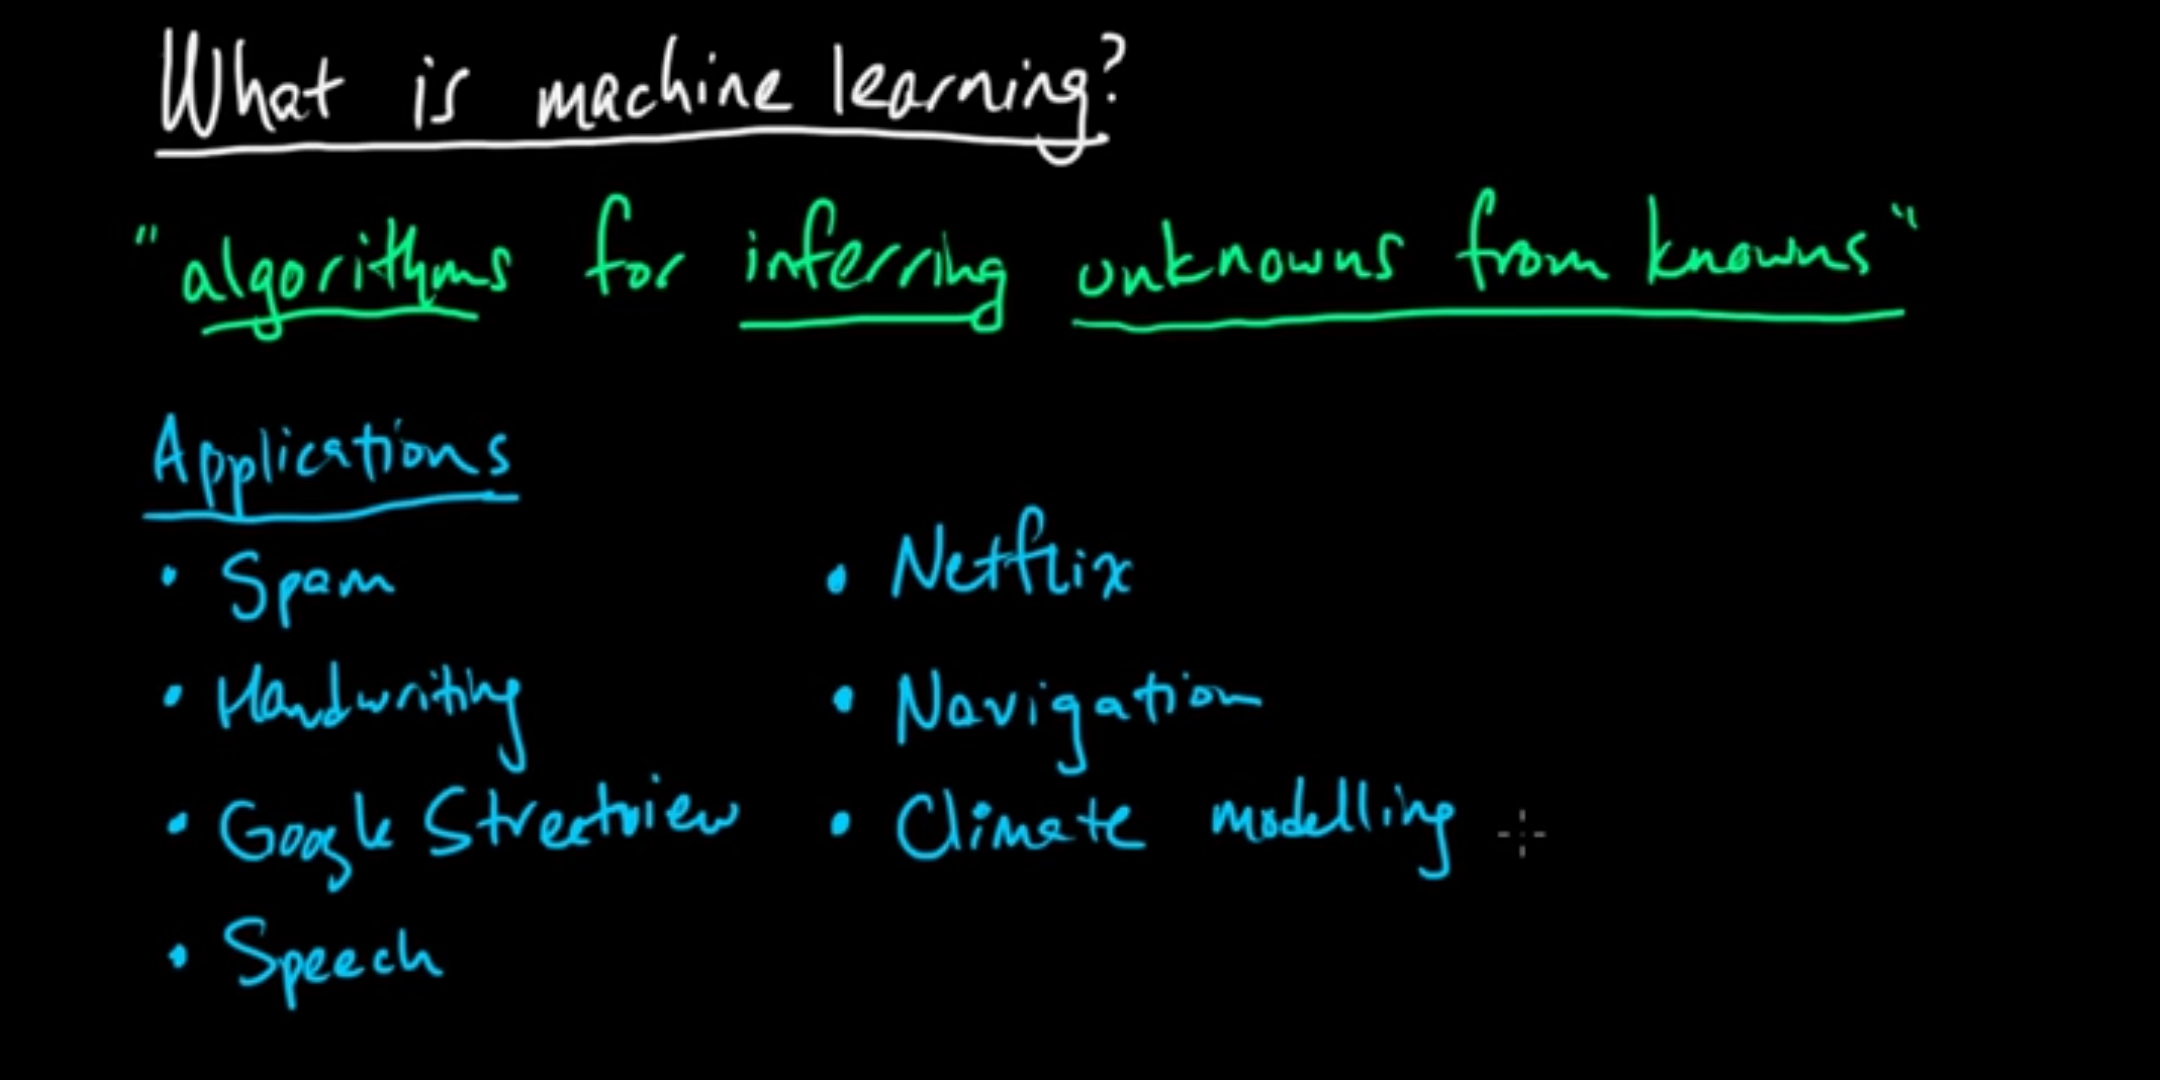 What is machine learning?
"algorithms for inferring unknowns from knowns"
Applications
• Spam
• Handwriting
• Google Streetview
• Speech
• Netflix
• Navigation
• Climate modelling